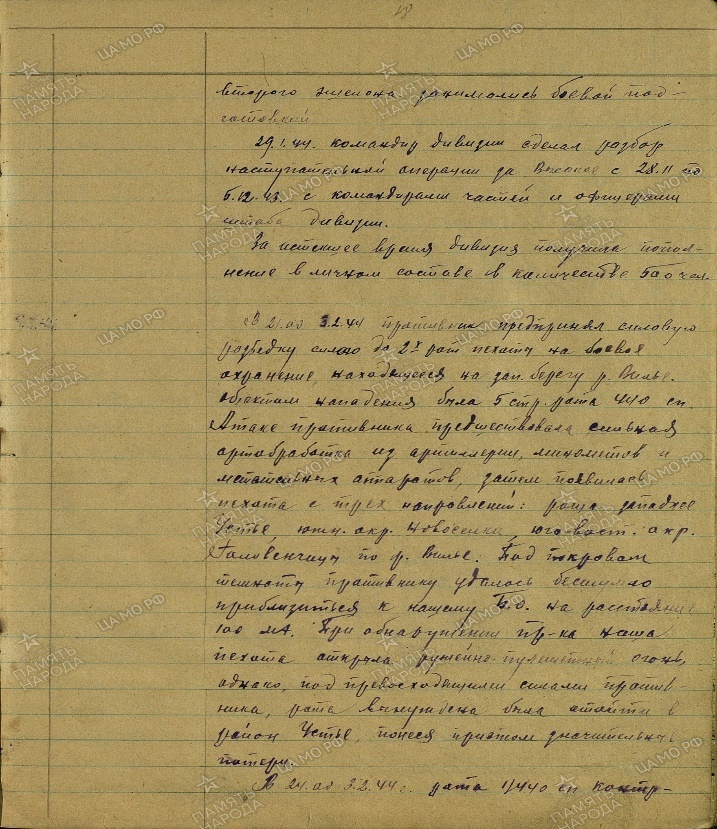 18
второго эшелона занимались боевой под-
готовкой
29.1.44. командир дивизии сделал разбор
наступательной операции за Высокое с 28.11 по
5.12.43. с командирами частей и офицерами
штаба дивизии.
За истекшее время дивизия получила попол-
нение в личном составе в количестве чел.
В 21.00 3.2.44 противник предпринял силовую
разведку силою до 2х рот пехоты на боевое
охранение, находящееся на зап. берегу р. Вилье.
Объектом нападения была 5 стр. рота 440 сп.
Атаке противника предшествовала сильная
артобработка из артиллерии, минометов и
метательных аппаратов, затем появилась
пехота с трех направлений: роща западнее
Устье, южн. окр. Новоселки, юго-вост. окр.
Головенчицы по р. Вилье. Под покровом
темноты противнику удалось бесшумно
приблизиться к нашему Б.О. на расстояние
100 мт. При обнаружении пр-ка наша
пехота открыла ружейно-пулеметный огонь,
однако, под превосходящими силами против-
ника, рота вынуждена была отойти в
район Устье, понеся притом значительные
потери.
В 24.00 3.2.44 г. рота 1/440 сп контр-